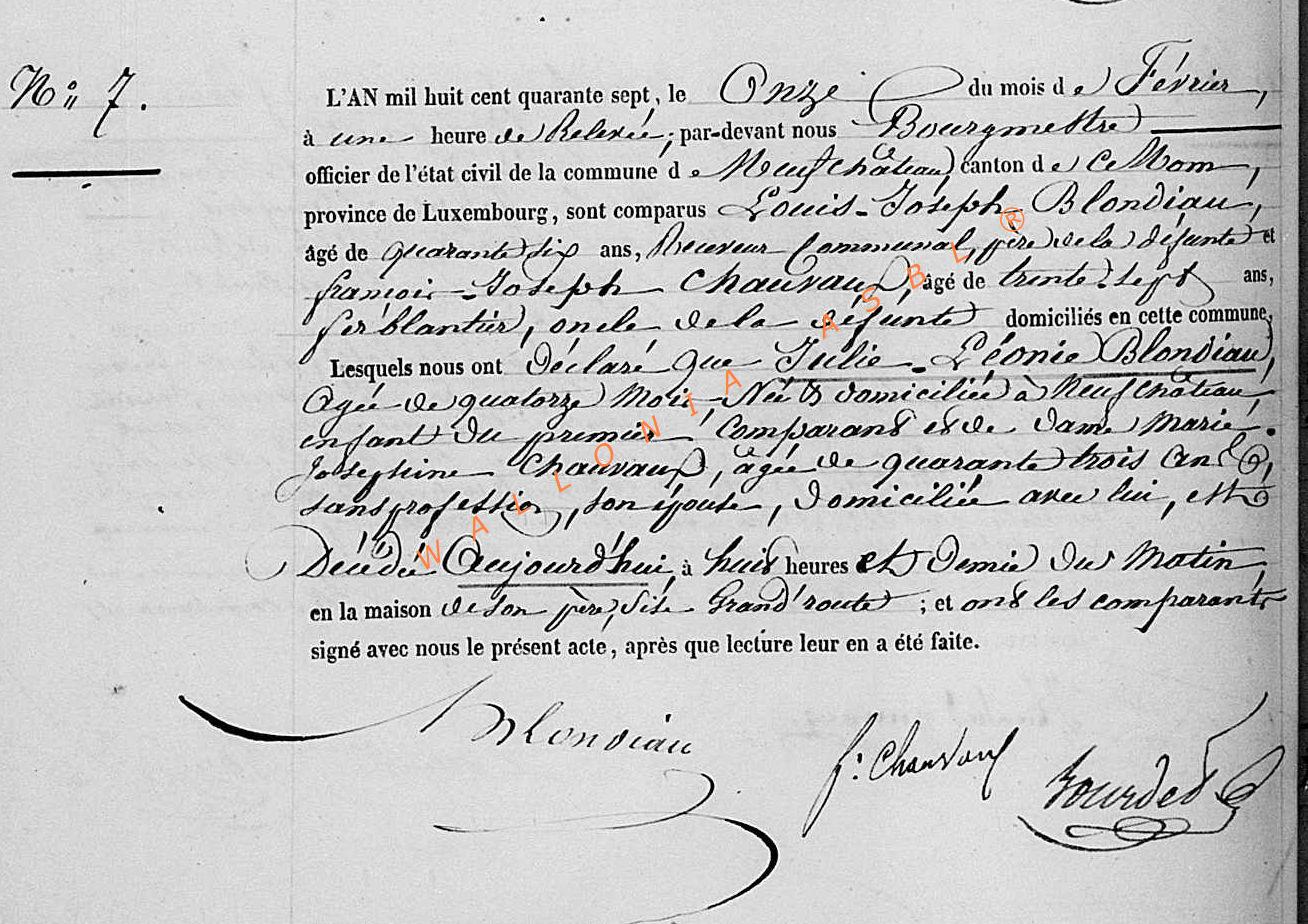 N° 7.
L'AN mil huit cent quarante sept, le Onze du mois de Février,
à une heure de Relevée, par-devant nous Bourgmestre
officier de l'état civil de la commune de Neufchâteau, canton de ce Nom,
province de Luxembourg, sont comparus Louis-Joseph Blondiau,
âgé de quarante six ans, Receveur Communal, père de la défunte et
françois-Joseph Chauvaux, âgé de trente sept ans,
ferblantier, oncle de la défunte domiciliés en cette commune,
Lesquels nous ont déclaré que Julie-Léonie Blondiau,
Agée de quatorze Mois, Née & domiciliée à Neufchâteau,
enfant du premier Comparant et de Dame Marie-
Josephine Chauvaux, âgée de quarante trois ans,
sans profession, son épouse, domiciliée avec lui, est
Décédée Aujourd'hui, à huit heures et Demie du Matin,
en la maison de son père, sise Grand'route ; et ont les comparants
signé avec nous le présent acte, après que lecture leur en a été faite.
Blondiau
f: Chauvaux
Bourded
WALLONIA ASBL ®